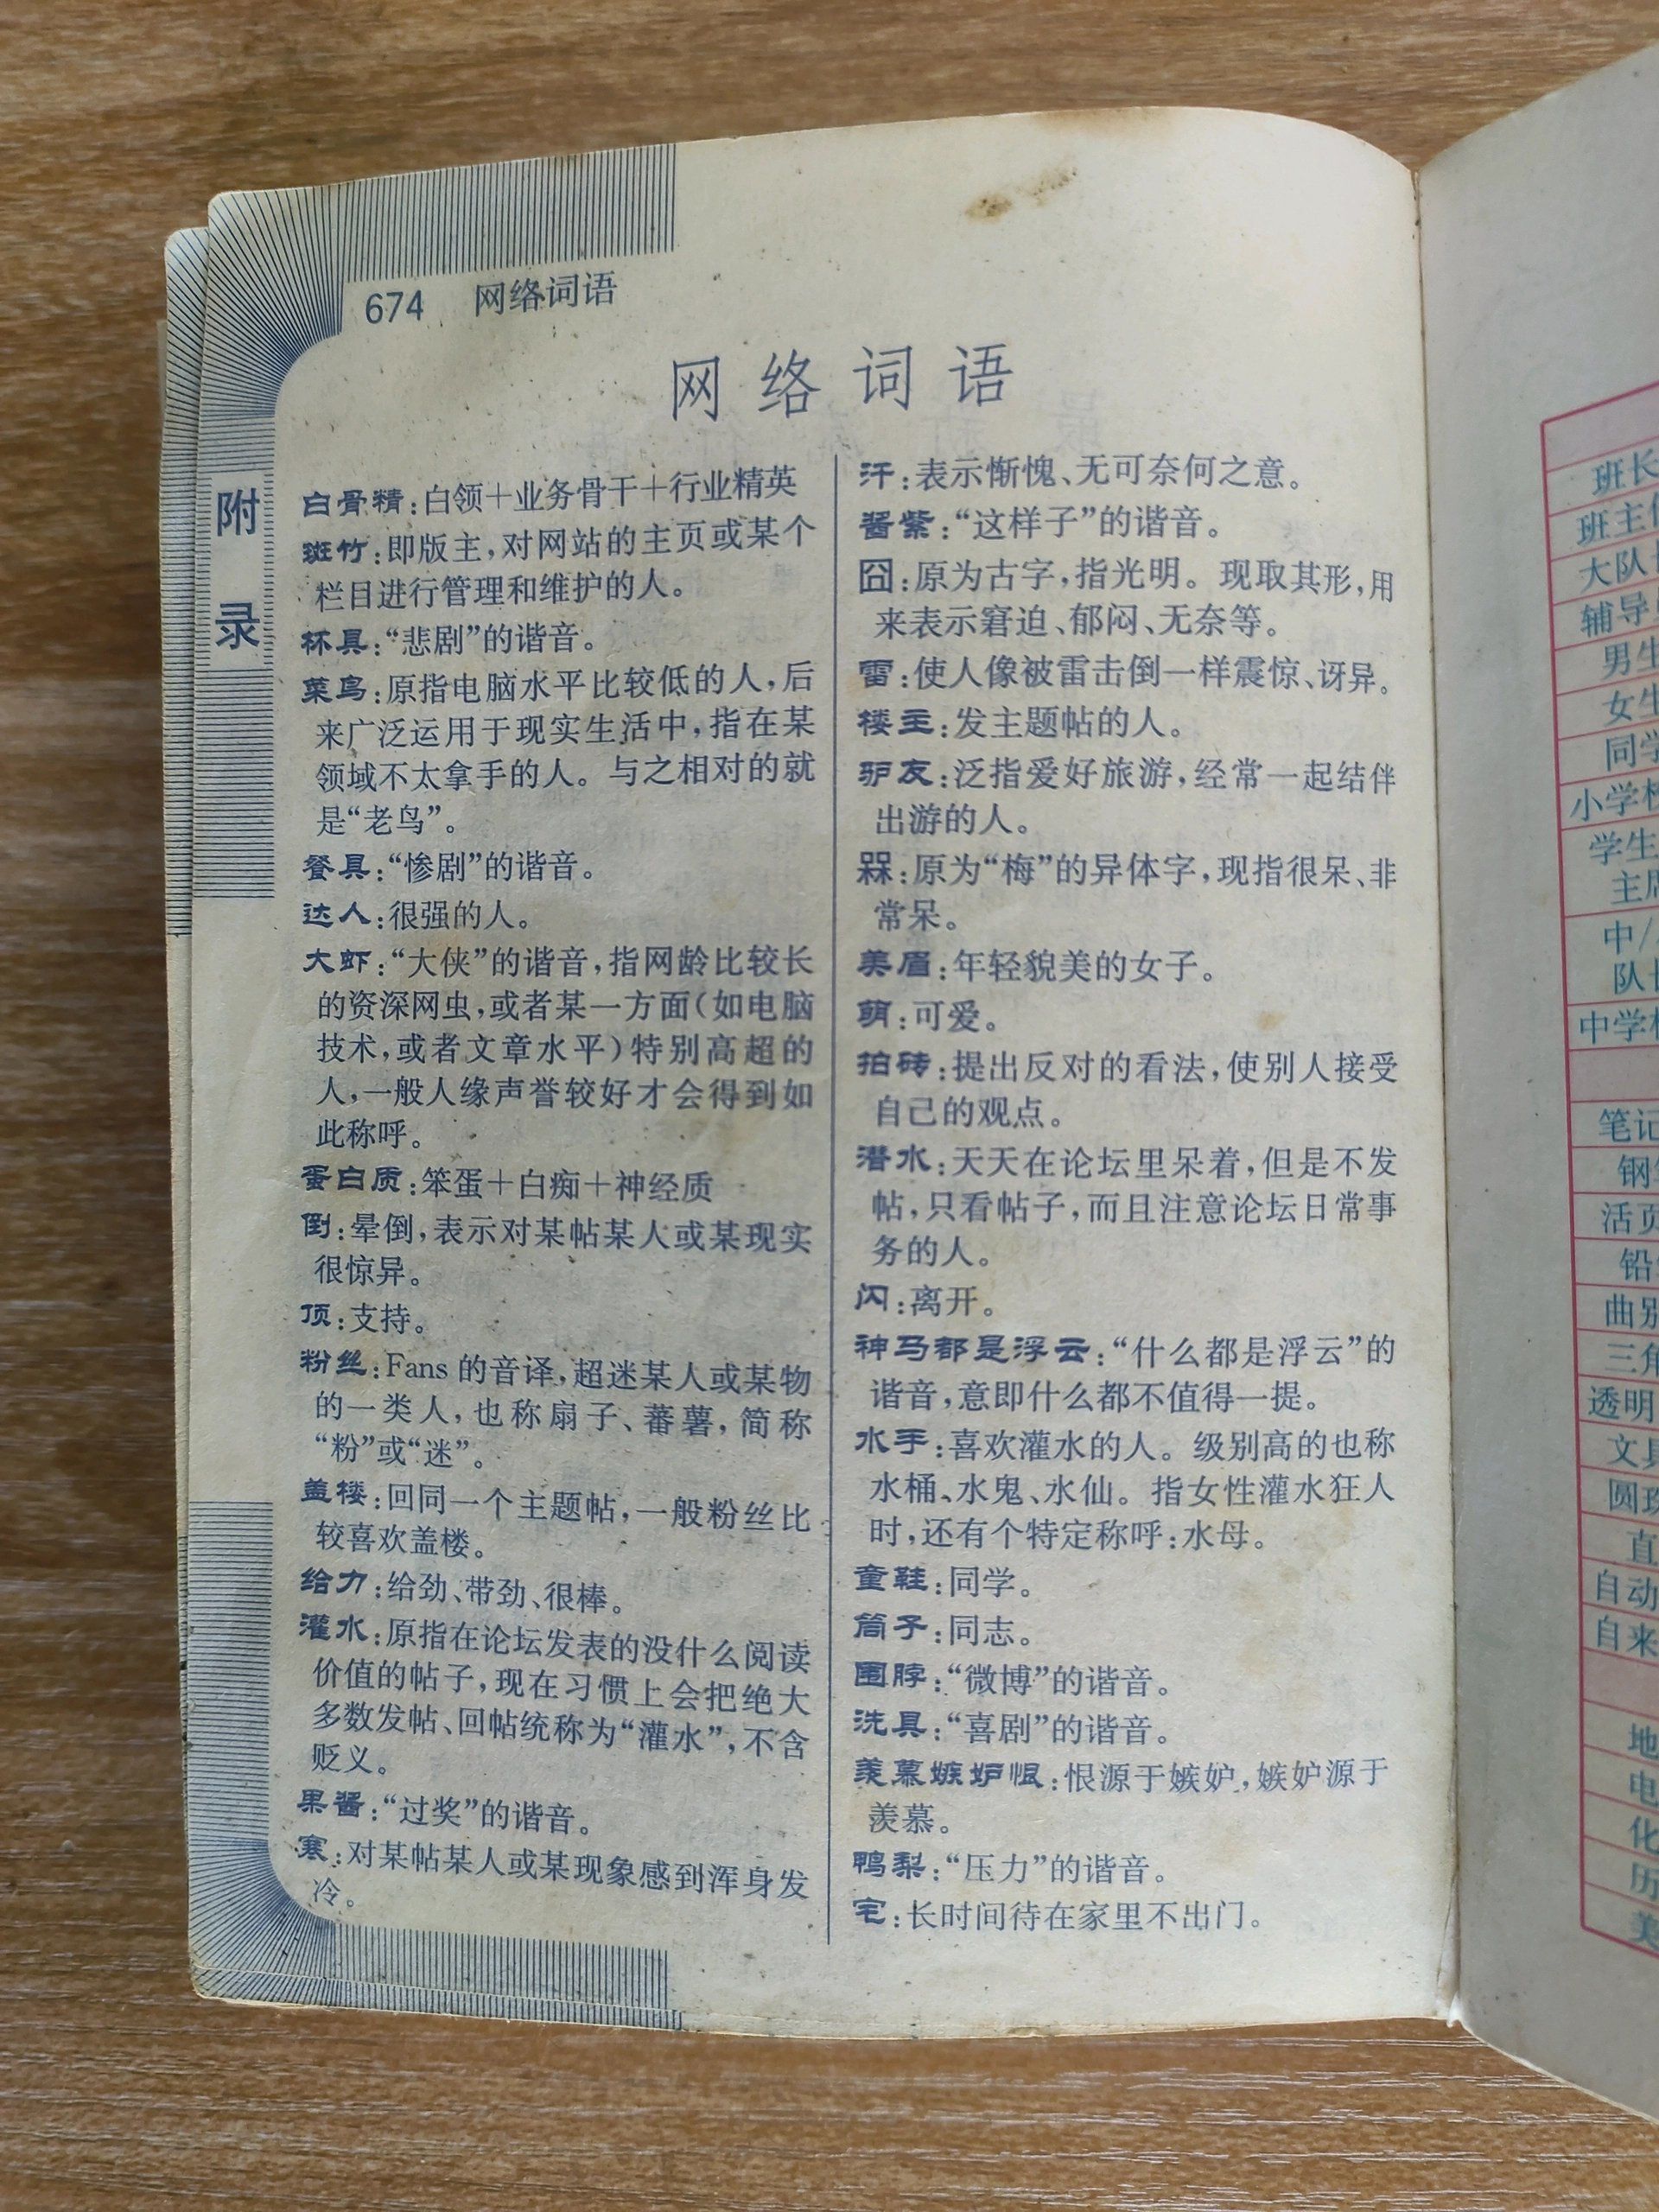 674 网络词语
网络词语
附
录
白骨精:白领+业务骨干+行业精英
斑竹:即版主,对网站的主页或某个
栏目进行管理和维护的人。
杯具:“悲剧”的谐音。
菜鸟:原指电脑水平比较低的人,后
来广泛运用于现实生活中,指在某
领域不太拿手的人。与之相对的就
是“老鸟”。
餐具:“惨剧”的谐音。
达人:很强的人。
大虾:“大侠”的谐音,指网龄比较长
的资深网虫,或者某一方面(如电脑
技术,或者文章水平)特别高超的
人,一般人缘声誉较好才会得到如
此称呼。
蛋白质:笨蛋+白痴+神经质
倒:晕倒,表示对某帖某人或某现实
很惊异。
顶:支持。
粉丝:Fans 的音译,超迷某人或某物
的一类人,也称扇子、蕃薯,简称
“粉”或“迷”。
盖楼:回同一个主题帖,一般粉丝比
较喜欢盖楼。
给力:给劲、带劲、很棒。
灌水:原指在论坛发表的没什么阅读
价值的帖子,现在习惯上会把绝大
多数发帖、回帖统称为“灌水”,不含
贬义。
果酱:“过奖”的谐音。
寒:对某帖某人或某现象感到浑身发
冷。
汗:表示惭愧、无可奈何之意。
酱紫:“这样子”的谐音。
囧:原为古字,指光明。现取其形,用
来表示窘迫、郁闷、无奈等。
雷:使人像被雷击倒一样震惊、讶异。
楼主:发主题帖的人。
驴友:泛指爱好旅游,经常一起结伴
出游的人。
槑:原为“梅”的异体字,现指很呆、非
常呆。
美眉:年轻貌美的女子。
萌:可爱。
拍砖:提出反对的看法,使别人接受
自己的观点。
潜水:天天在论坛里呆着,但是不发
帖,只看帖子,而且注意论坛日常事
务的人。
闪:离开。
神马都是浮云:“什么都是浮云”的
谐音,意即什么都不值得一提。
水手:喜欢灌水的人。级别高的也称
水桶、水鬼、水仙。指女性灌水狂人
时,还有个特定称呼:水母。
童鞋:同学。
筒子:同志。
围脖:“微博”的谐音。
洗具:“喜剧”的谐音。
羡慕嫉妒恨:恨源于嫉妒,嫉妒源于
羡慕。
鸭梨:“压力”的谐音。
宅:长时间待在家里不出门。
班长
班主
大队
辅导
男生
女生
同学
小学校
学生
主席
中/
队长
中学校
笔记
钢
活页
铅
曲别
三角
透明
文具
圆珠
直
自动
自来
地
电
化
历
美